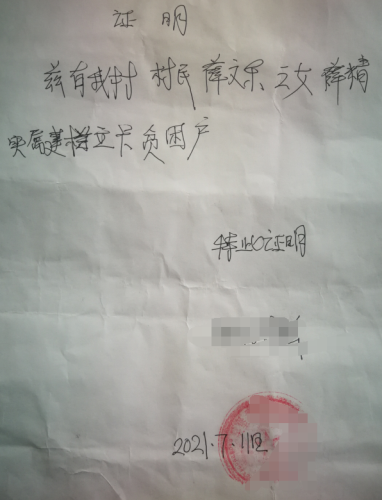 证 明
兹有我村 村民 薛文乐 之女 薛精
实属建档立卡贫困户
特此证明
2021.7.11日